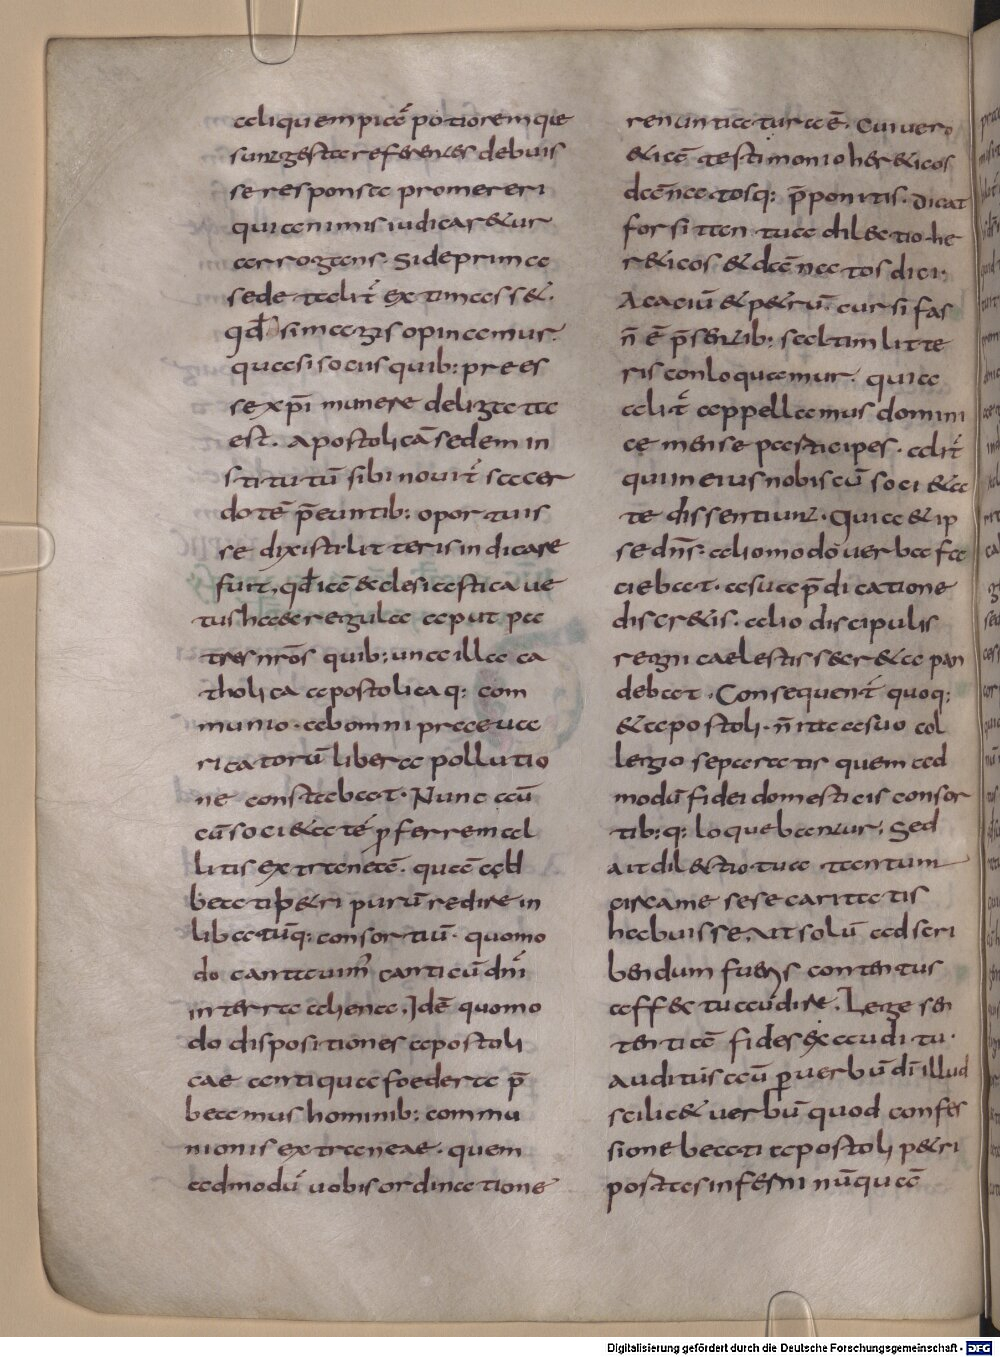 aliquem picẽ potiorem que
sunt gesta referentes debuis
se responsa promereri
qui animis iudicaretur
arrogans. Si de prima
sede talit̃ extimasset.
qđ si magis opinamur.
quaesi socius quib: prees
se xp̃i munere delegata
est. apostolicã sedem in
stitutũ sibi nouit̃ sacer
dotẽ p̃euntib: oportuis
se dixisti litteris indicare
fuit, qđ iã ecclesiastica ue
tus habet regula aput pa
tres nr̃os quib: una illa ca
tholica apostolicaq: com
munio ab omni praeua
ricatorũ libera pollutio
ne constabat. Nunc aũ
cũ sociẽtatẽ p̱ferrem al
litis extraneã. quã ad
beati petri purũ redire in
libatũq: consortiũ. quomo
do canticum canticũ dñi
in terra aliena. Idẽ quomo
do dispositiones apostoli
cae antiqua foedera p̃
beamus hominib: commu
nionis extraneae. quem
admodũ uobis ordinatione
renuntiatur cẽ. Cui uero
&iã testimonio her&icos
dãnatosq: p̃ponitis. Dicat
forsitan tua dilectio he
r&icos & dãnatos dici.
Acaciũ & p&rũ. cur si fas
ñ ẽ p̃sentib: saltim litte
ris conloquamur. quia
talit̃ appellamus domini
ce mense participes. alit̃
qui in eius nobiscũ soci&a
te dissentiunt. Quia & ip
se dñs. alio modo uerba fa
ciebat. a sua p̃dicatione
discr&is. alio discipulis
regni caelestis secr&a pan
debat. Consequent̃ quoq:
& apostoli. ñ ita a suo col
legio separatis quem ad
modũ fidei domesticis consor
tib:q: loquebantur. Sed
ait dilectio tua tantum
circa me sese caritatis
habuisse. Ait solũ ad scri
bendum fuens contentus
affectu audire. Lege sen
tentiã fides ex auditu.
auditus aũ p̱ uerbũ dĩ illud
scilic& uerbũ quod confes
sione beati apostoli p&ri
portas inferni nũquã
Digitalisierung gefördert durch die Deutsche Forschungsgemeinschaft - DFG